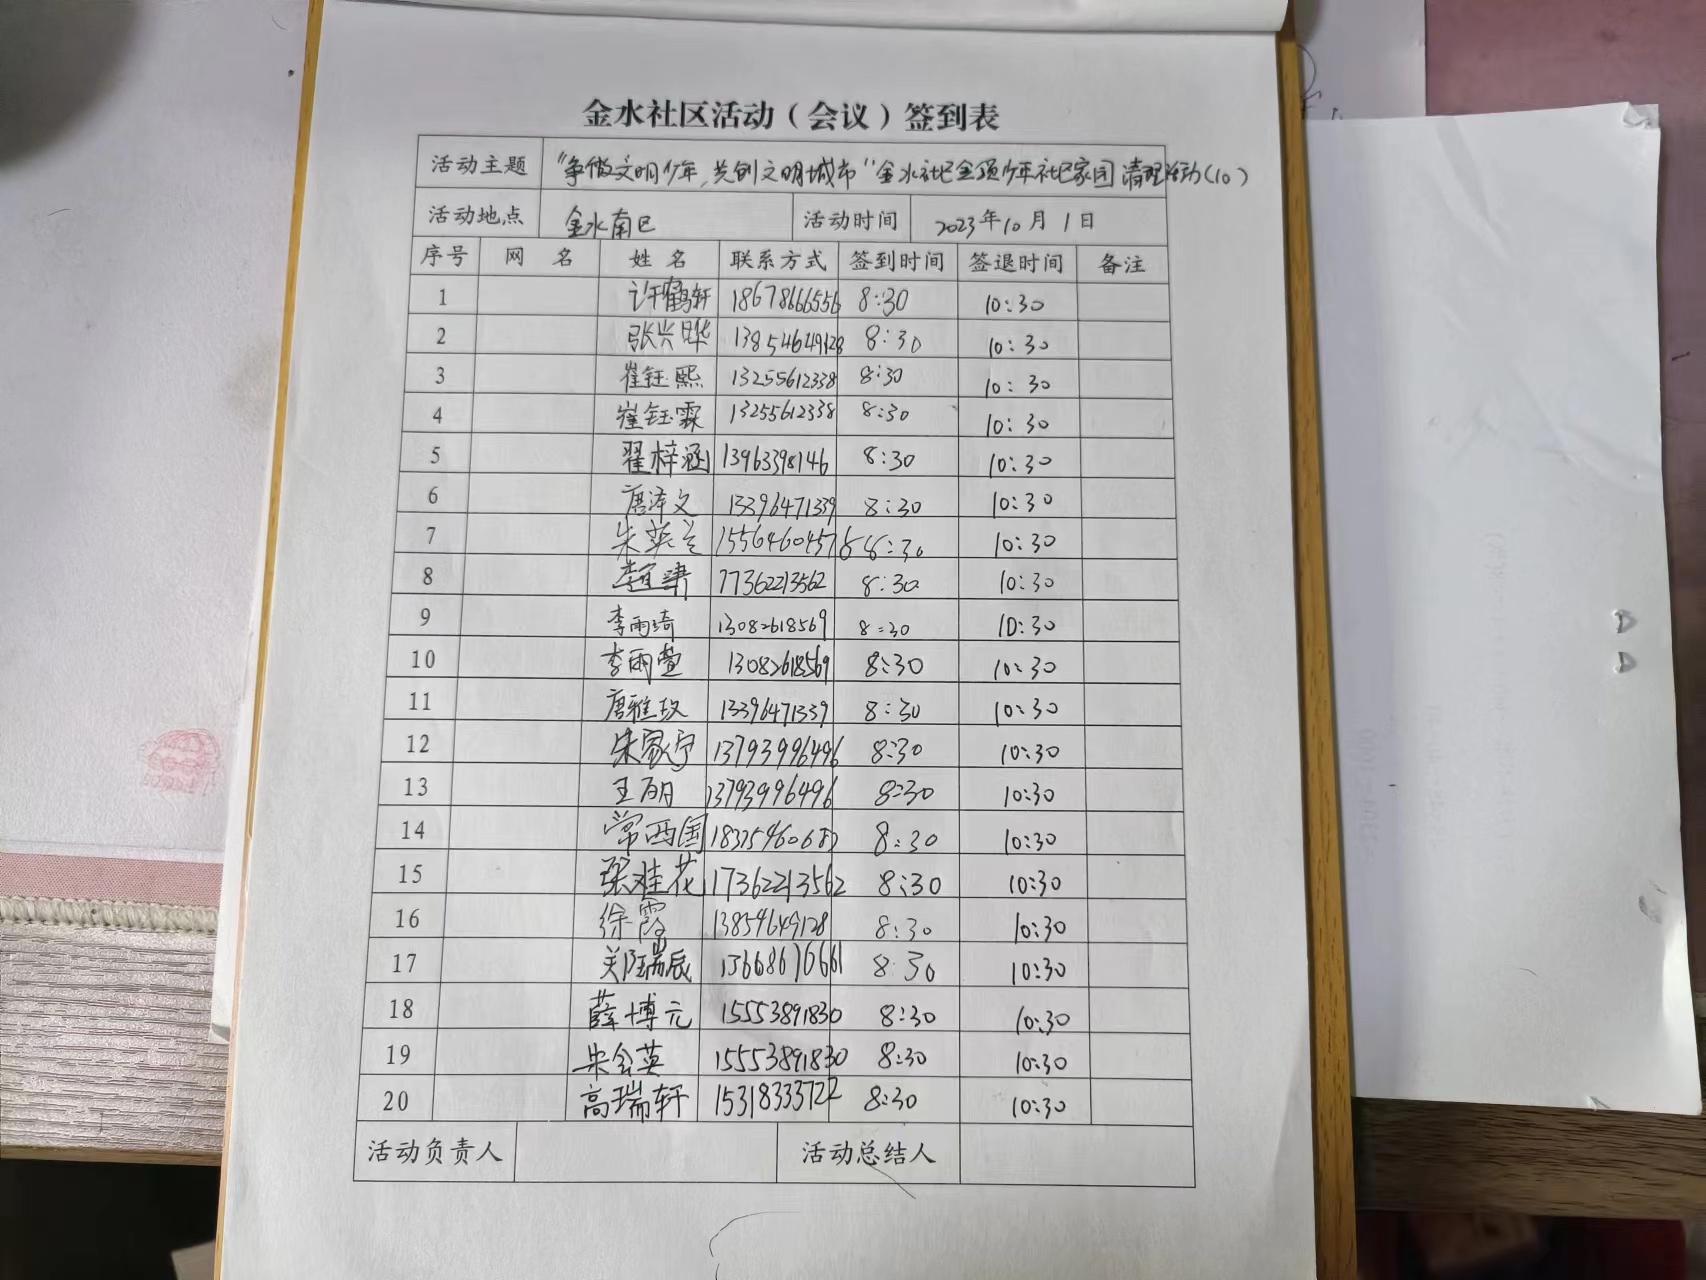 金水社区活动（会议）签到表
活动主题 "争做文明少年,共创文明城市"金水社区金领少年社区家园清理活动(10)
活动地点 金水南区 活动时间 2023年10月1日
序号 网名 姓名 联系方式 签到时间 签退时间 备注
1 许鹤轩 18678666556 8:30 10:30
2 张兴晔 13854649128 8:30 10:30
3 崔钰熙 13255612338 8:30 10:30
4 崔钰霖 13255612338 8:30 10:30
5 翟梓涵 13963398146 8:30 10:30
6 唐泽文 13396471339 8:30 10:30
7 朱英兰 15564604578 8:30 10:30
8 17362213562 8:30 10:30
9 李雨琦 13082618569 8:30 10:30
10 李雨萱 13082618569 8:30 10:30
11 唐雅玫 13396471339 8:30 10:30
12 朱家宁 13793996496 8:30 10:30
13 王丽 13793996496 8:30 10:30
14 常西国 8:30 10:30
15 张桂花 17362213562 8:30 10:30
16 徐霞 13854649128 8:30 10:30
17 郑瑞辰 13668676661 8:30 10:30
18 薛博元 15553891830 8:30 10:30
19 朱会英 15553891830 8:30 10:30
20 高瑞轩 15318333722 8:30 10:30
活动负责人 活动总结人